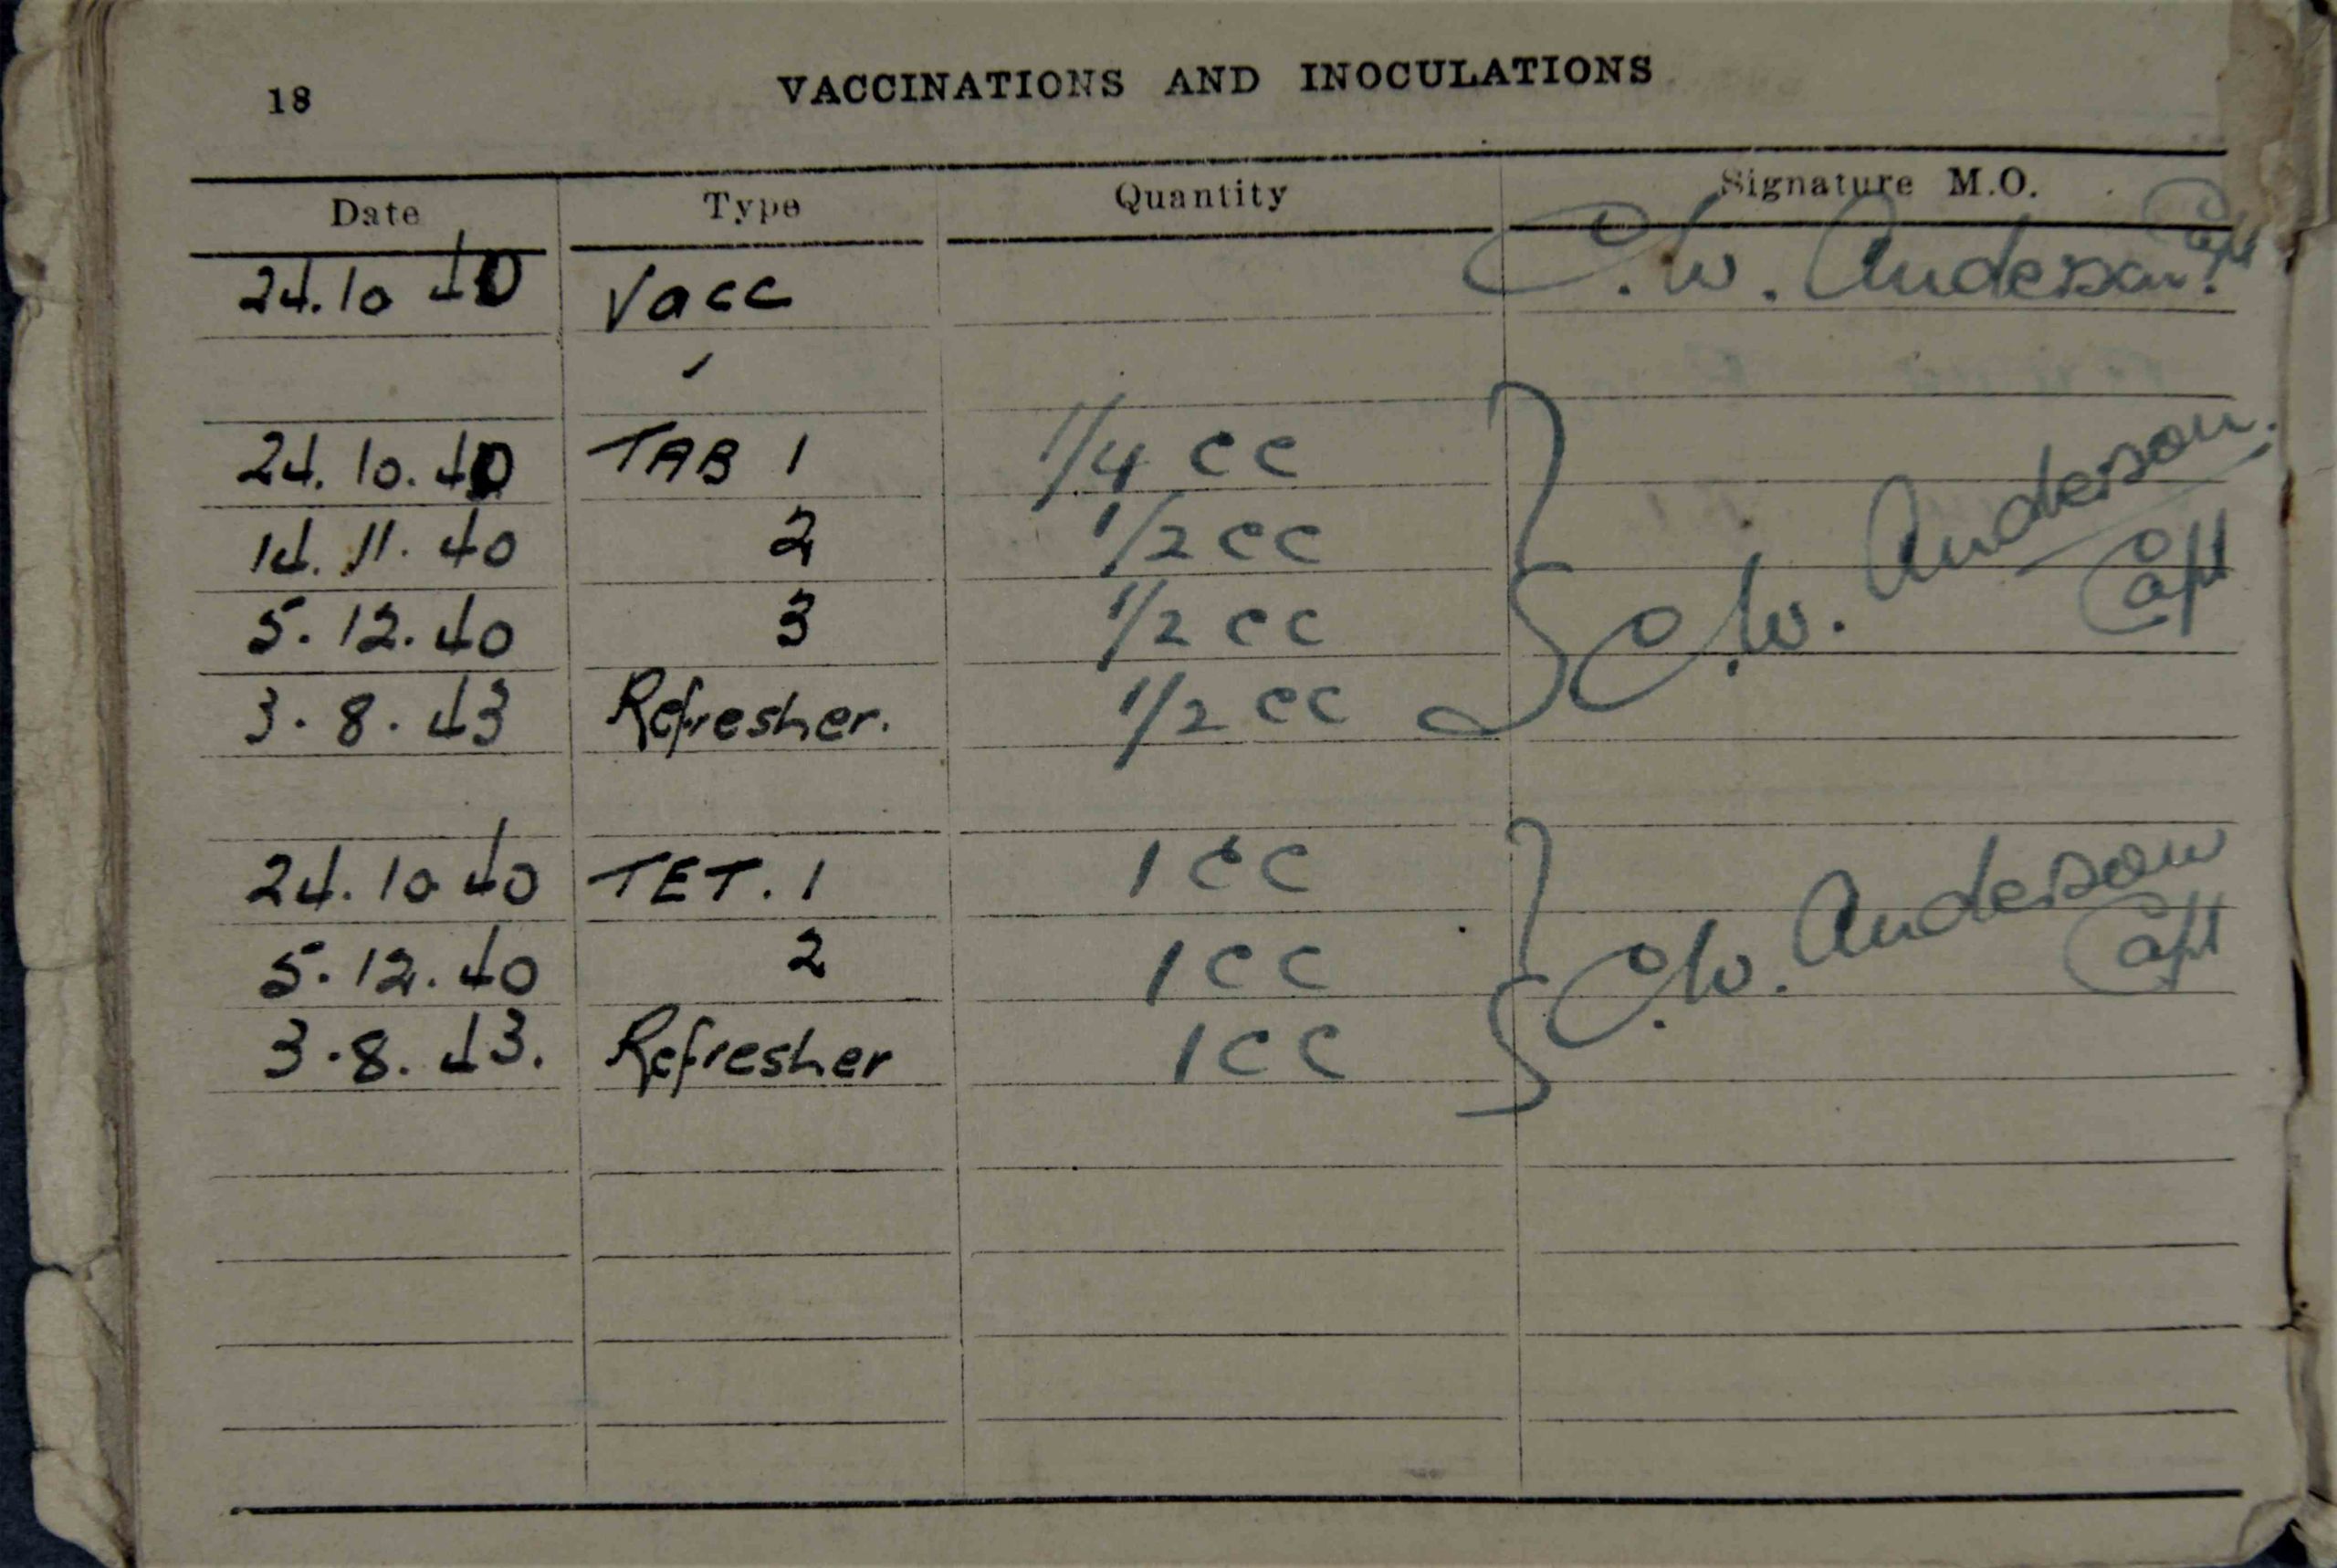 18 VACCINATIONS AND INOCULATIONS
Date Type Quantity Signature M.O.
24.10 40 Vacc C.W. Anderson. Capt
24.10.40 TAB 1 1/4 cc
14.11.40 2 1/2 cc
5.12.40 3 1/2 cc C.W. Anderson. Capt
3.8.43 Refresher. 1/2 cc
24.10 40 TET. 1 1 cc
5.12.40 2 1 cc C.W. Anderson Capt
3.8.43. Refresher 1 cc